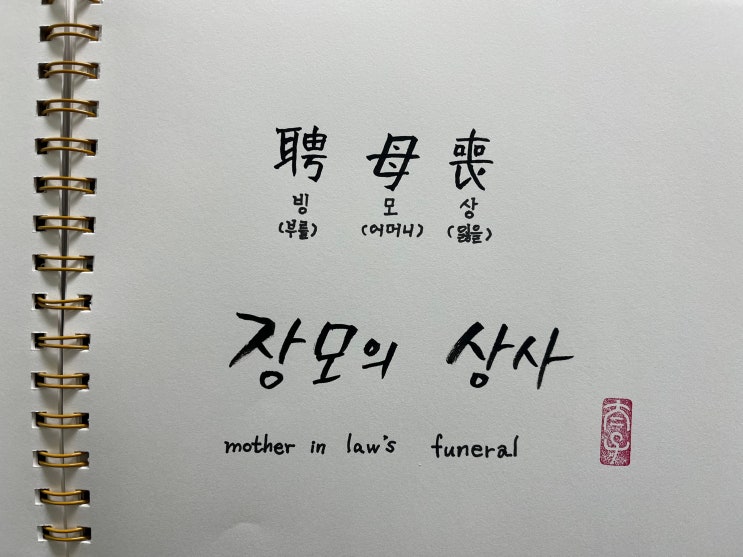 聘 母 喪
빙 모 상
(부를) (어머니) (잃을)
장모의 상사
mother in law's funeral